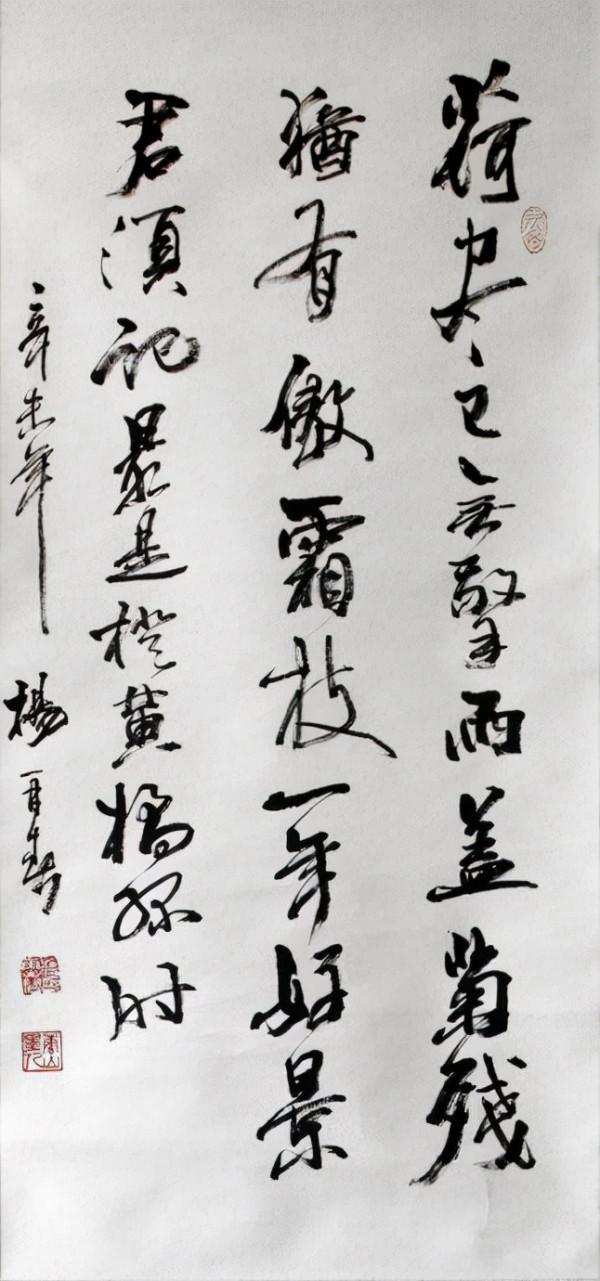 荷尽已无擎雨盖菊残
猶有傲霜枝一年好景
君須记最是橙黄橘绿时
辛未年 楊